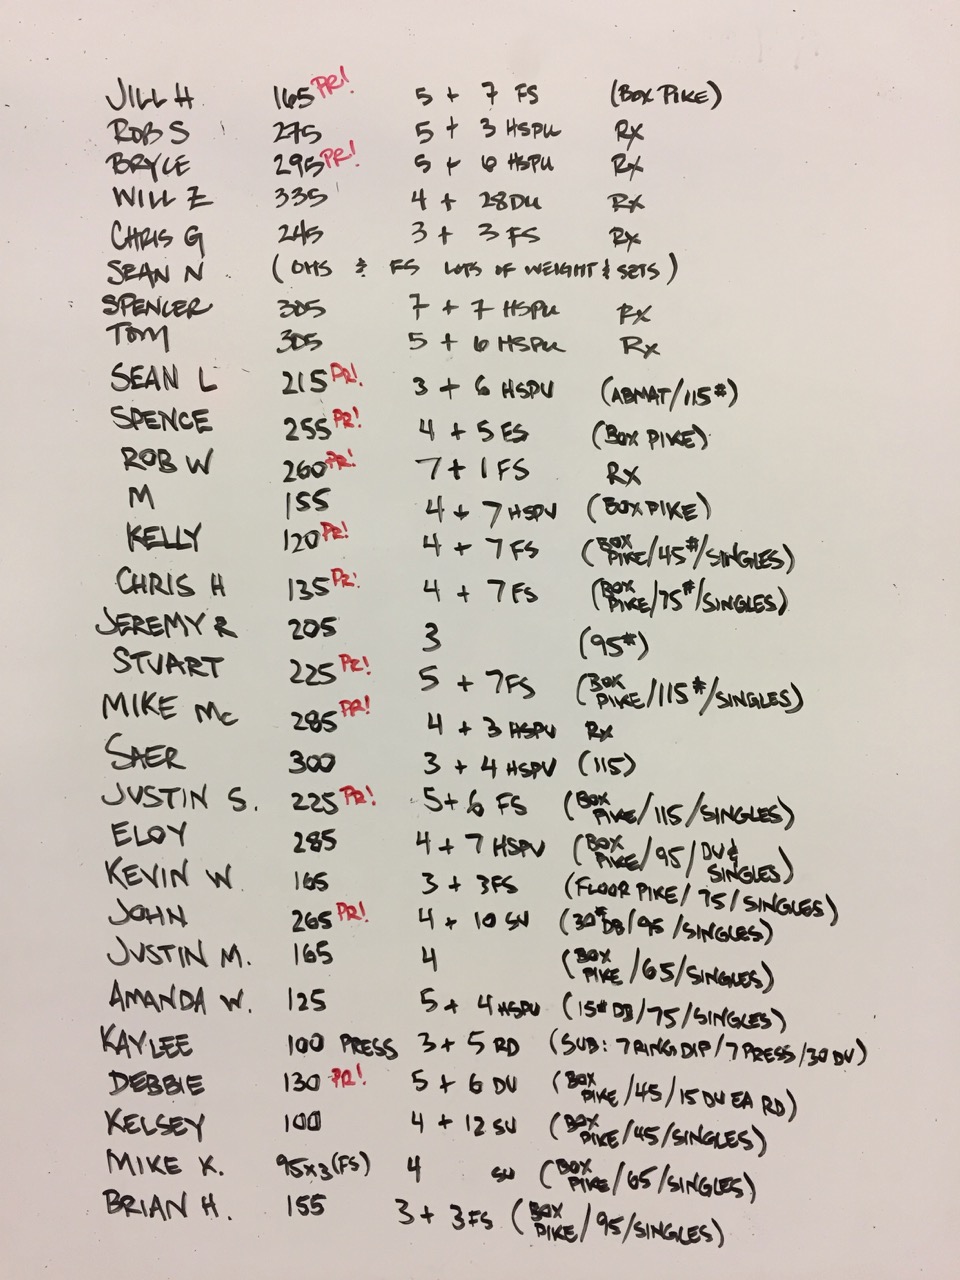 JILL H 165 PR! 5 + 7 FS (BOX PIKE)
ROB S 275 5 + 3 HSPU RX
BRYCE 295 PR! 5 + 6 HSPU RX
WILL Z 335 4 + 28DU RX
CHRIS G 245 3 + 3 FS RX
SEAN N (OHS & FS LOTS OF WEIGHT & SETS)
SPENCER 305 7 + 7 HSPU RX
TOM 305 5 + 6 HSPU RX
SEAN L 215 PR! 3 + 6 HSPU (ABMAT/115#)
SPENCE 255 PR! 4 + 5 FS (BOX PIKE)
ROB W 260 PR! 7 + 1 FS RX
M 155 4 + 7 HSPU (BOX PIKE)
KELLY 120 PR! 4 + 7 FS (BOX PIKE/45#/SINGLES)
CHRIS H 135 PR! 4 + 7 FS (BOX PIKE/75#/SINGLES)
JEREMY R 205 3 (95#)
STUART 225 PR! 5 + 7FS (BOX PIKE/115#/SINGLES)
MIKE Mc 285 PR! 4 + 3 HSPU RX
SAER 300 3 + 4 HSPU (115)
JUSTIN S. 225 PR! 5+ 6 FS (BOX PIKE/115/SINGLES)
ELOY 285 4 + 7 HSPU (BOX PIKE/95/DU & SINGLES)
KEVIN W 165 3 + 3FS (FLOOR PIKE/75/SINGLES)
JOHN 265 PR! 4 + 10 SU (30# DB/95/SINGLES)
JUSTIN M. 165 4 (BOX PIKE/65/SINGLES)
AMANDA W. 125 5 + 4 HSPU (15# DB/75/SINGLES)
KAYLEE 100 PRESS 3 + 5 RD (SUB: 7 RING DIP/7 PRESS/30 DU)
DEBBIE 130 PR! 5 + 6 DU (BOX PIKE/45/15 DU EA RD)
KELSEY 100 4 + 12 SU (BOX PIKE/45/SINGLES)
MIKE K. 95x3 (FS) 4 SU (BOX PIKE/65/SINGLES)
BRIAN H. 155 3 + 3FS (BOX PIKE/95/SINGLES)